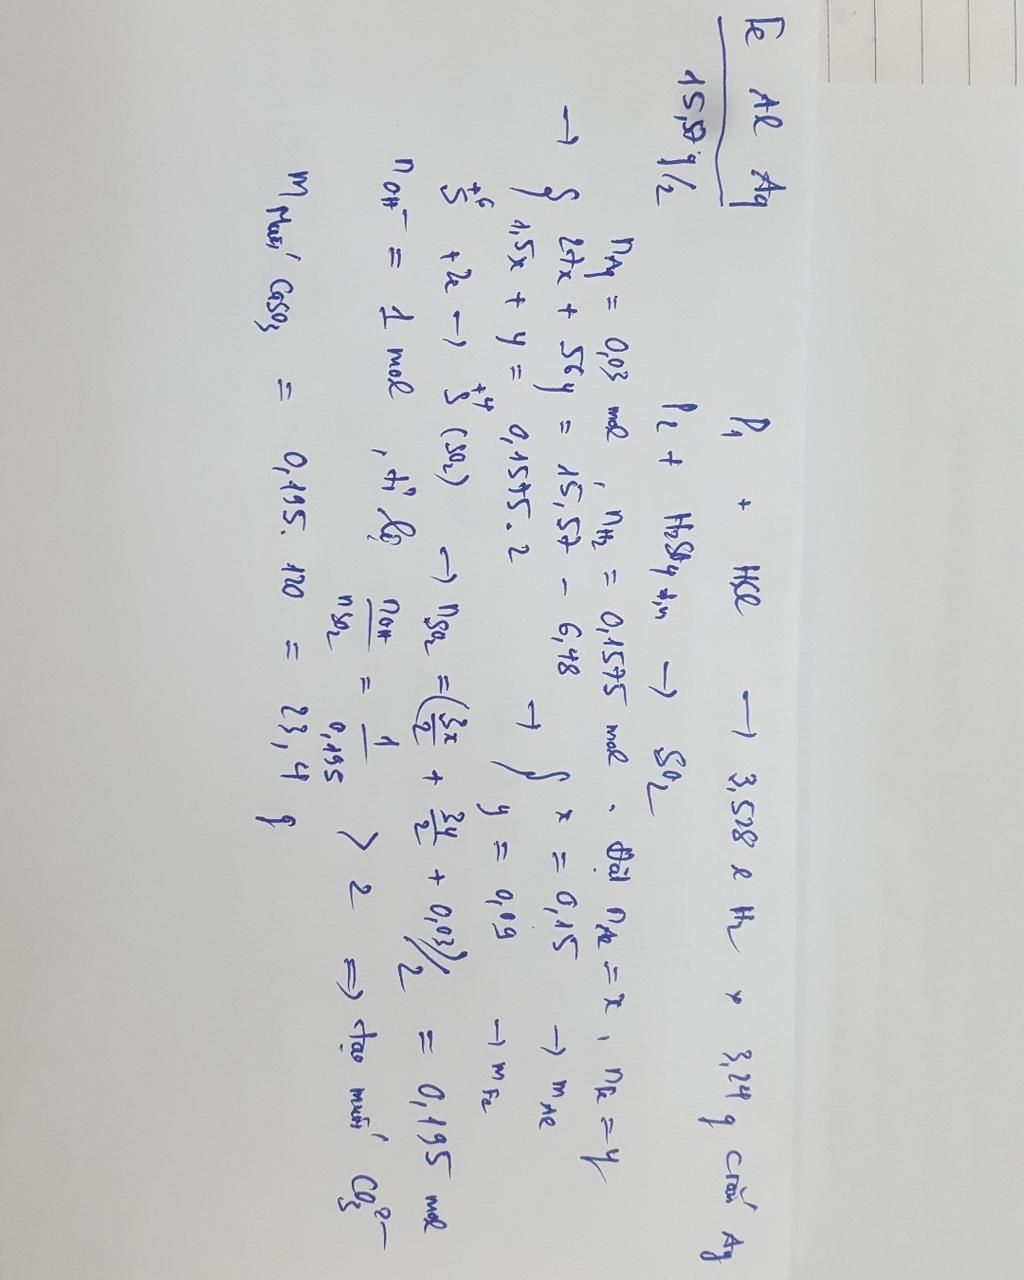 Fe Al Ag P₁ + HCl → 3,528 l H₂ + 3,24 g Ag
15,57 g/2 P₂ + H₂SO₄ đ,n → SO₂
n_Ag = 0,03 mol, n_H₂ = 0,1575 mol. Đặt n_Al = x, n_Fe = y
→ { 27x + 56y = 15,57 - 6,48 → { x = 0,15 → m_Al
1,5x + y = 0,1575.2 y = 0,09 → m_Fe
S⁺⁶ + 2e → S⁺⁴ (SO₂) → n_SO₂ = (3x/2 + 3y/2 + 0,03)/2 = 0,195 mol
n_OH⁻ = 1 mol, tỉ lệ n_OH/n_SO₂ = 1/0,195 > 2 ⇒ tạo muối CO₃²⁻
m muối CaSO₃ = 0,195.120 = 23,4 g